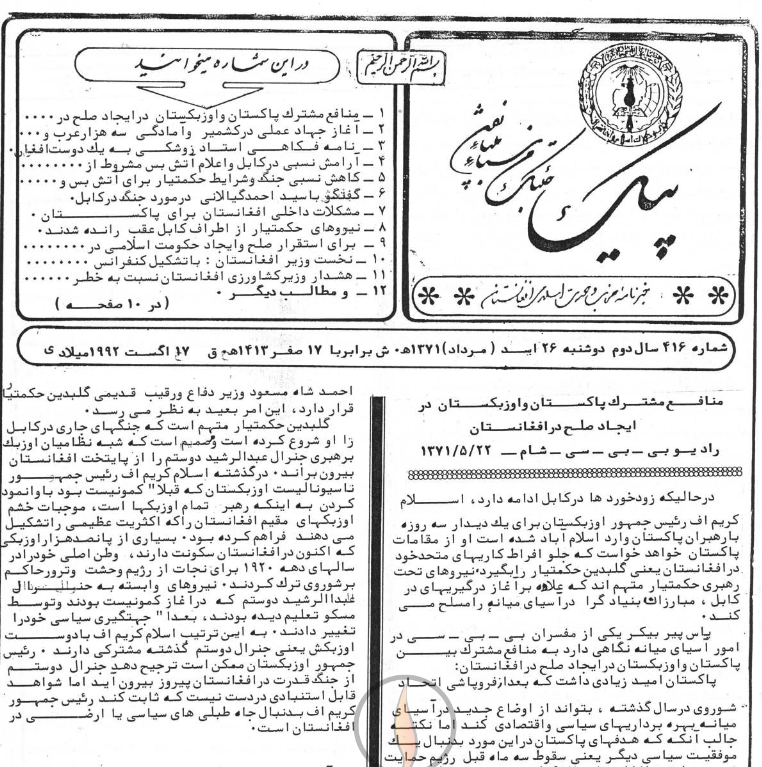 بسم الله الرحمن الرحیم
در این شماره میخوانید
۱ ــ منافع مشترك پاکستان و اوزبکستان درایجاد صلح در ۰۰۰۰
۲ ــ آغاز جهاد عملی درکشمیر وآمادگی سه هزارعرب و ۰۰۰
۳ ــ نامه فکاهی استاد زوشکی به یك دوست افغان۰
۴ ــ آرامش نسبی درکابل واعلام آتش بس مشروط از ۰۰۰۰۰۰۰۰
۵ ــ کاهش نسبی جنگ وشرایط حکمتیار برای آتش بس و ۰۰۰۰۰
۶ ــ گفتگو باسید احمدگیلانی درمورد جنگ درکابل۰
۷ ــ مشکلات داخلی افغانستان برای پاکستان ۰
۸ ــ نیروهای حکمتیار از اطراف کابل عقب رانده شدند۰
۹ ــ برای استقرار صلح وایجاد حکومت اسلامی در ۰۰۰۰۰۰۰۰۰
۱۰ ــ نخست وزیر افغانستان : باتشکیل کنفرانس ۰۰۰۰۰۰۰۰
۱۱ ــ هشدار وزیرکشاورزی افغانستان نسبت به خطر ۰۰۰۰۰۰
۱۲ ــ و مطالب دیگر ۰
( در ۱۰ صفحه )
پیک
خبرنامه حزب وحدت اسلامی افغانستان
شماره ۴۱۶ سال دوم دوشنبه ۲۶ اسد ( مرداد) ۱۳۷۱ه۰ ش برابربا ۱۷ صفر ۱۴۱۳ه ق ۱۷ اگست ۱۹۹۲میلادی
منافع مشترك پاکستان واوزبکستان در
ایجاد صلح درافغانستان
رادیو بی ــ بی ــ سی ــ شام ــ ۱۳۷۱/۵/۲۲
درحالیکه زدوخورد ها درکابل ادامه دارد، اسلام
کریم اف رئیس جمهور اوزبکستان برای یك دیدار سه روزه
بارهبران پاکستان وارد اسلام آباد شده است او از مقامات
پاکستان خواهد خواست که جلو افراط کاریهای متحدخود
درافغانستان یعنی گلبدین حکمتیار رابگیرد۰نیروهای تحت
رهبری حکمتیار متهم اند که علاوه برآغاز درگیریهای در
کابل ، مبارزان بنیاد گرا درآسیای میانه رامسلح می
کنند۰
پاس پیر بیکر یکی از مفسران بی ــ بی ــ سی در
امور آسیای میانه نگاهی دارد به منافع مشترك بین
پاکستان واوزبکستان درایجاد صلح درافغانستان:
پاکستان امید زیادی داشت که بعدازفروپاشی اتحاد
شوروی درسال گذشته ، بتواند از اوضاع جدید درآسیای
میانه بهره برداریهای سیاسی واقتصادی کند۰ اما نکته
جالب آنکه که هدفهای پاکستان دراین مورد بدنبال یك
موفقیت سیاسی دیگر یعنی سقوط سه ماه قبل رژیم حمایت
احمد شاه مسعود وزیر دفاع ورقیب قدیمی گلبدین حکمتیا
قرار دارد، این امر بعید به نظر می رسد۰
گلبدین حکمتیار متهم است که جنگهای جاری درکابل
را او شروع کرده است ومصمم است که شبه نظامیان اوزبك
برهبری جنرال عبدالرشید دوستم را از پایتخت افغانستان
بیرون براند۰ درگذشته اسلام کریم اف رئیس جمهور
ناسیونالیست اوزبکستان که قبلا" کمونیست بود باوانمود
کردن به اینکه رهبر تمام اوزبکها است، موجبات خشم
اوزبکهای مقیم افغانستان راکه اکثریت عظیمی راتشکیل
می دهند فراهم کرده بود۰ بسیاری از پانصدهزاراوزبکی
که اکنون درافغانستان سکونت دارند، وطن اصلی خودرادر
سالهای دهه ۱۹۲۰ برای نجات از رژیم وحشت وترورحاکم
برشوروی ترك کردند۰ نیروهای وابسته به جنرال
عبدالرشید دوستم که درآغاز کمونیست بودند وتوسط
مسکو تعلیم دیده بودند، بعدا" جهتگیری سیاسی خودرا
تغییر دادند۰ به این ترتیب اسلام کریم اف بادوست
اوزبکش یعنی جنرال دوستم گذشته مشترکی دارند ۰ رئیس
جمهور اوزبکستان ممکن است ترجیح دهد جنرال دوستم
از جنگ قدرت درافغانستان پیروز بیرون آید اما شواهد
قابل استنادی دردست نیست که ثابت کند رئیس جمهور
کریم اف بدنبال جاه طبلی های سیاسی یا ارضی در
افغانستان است۰